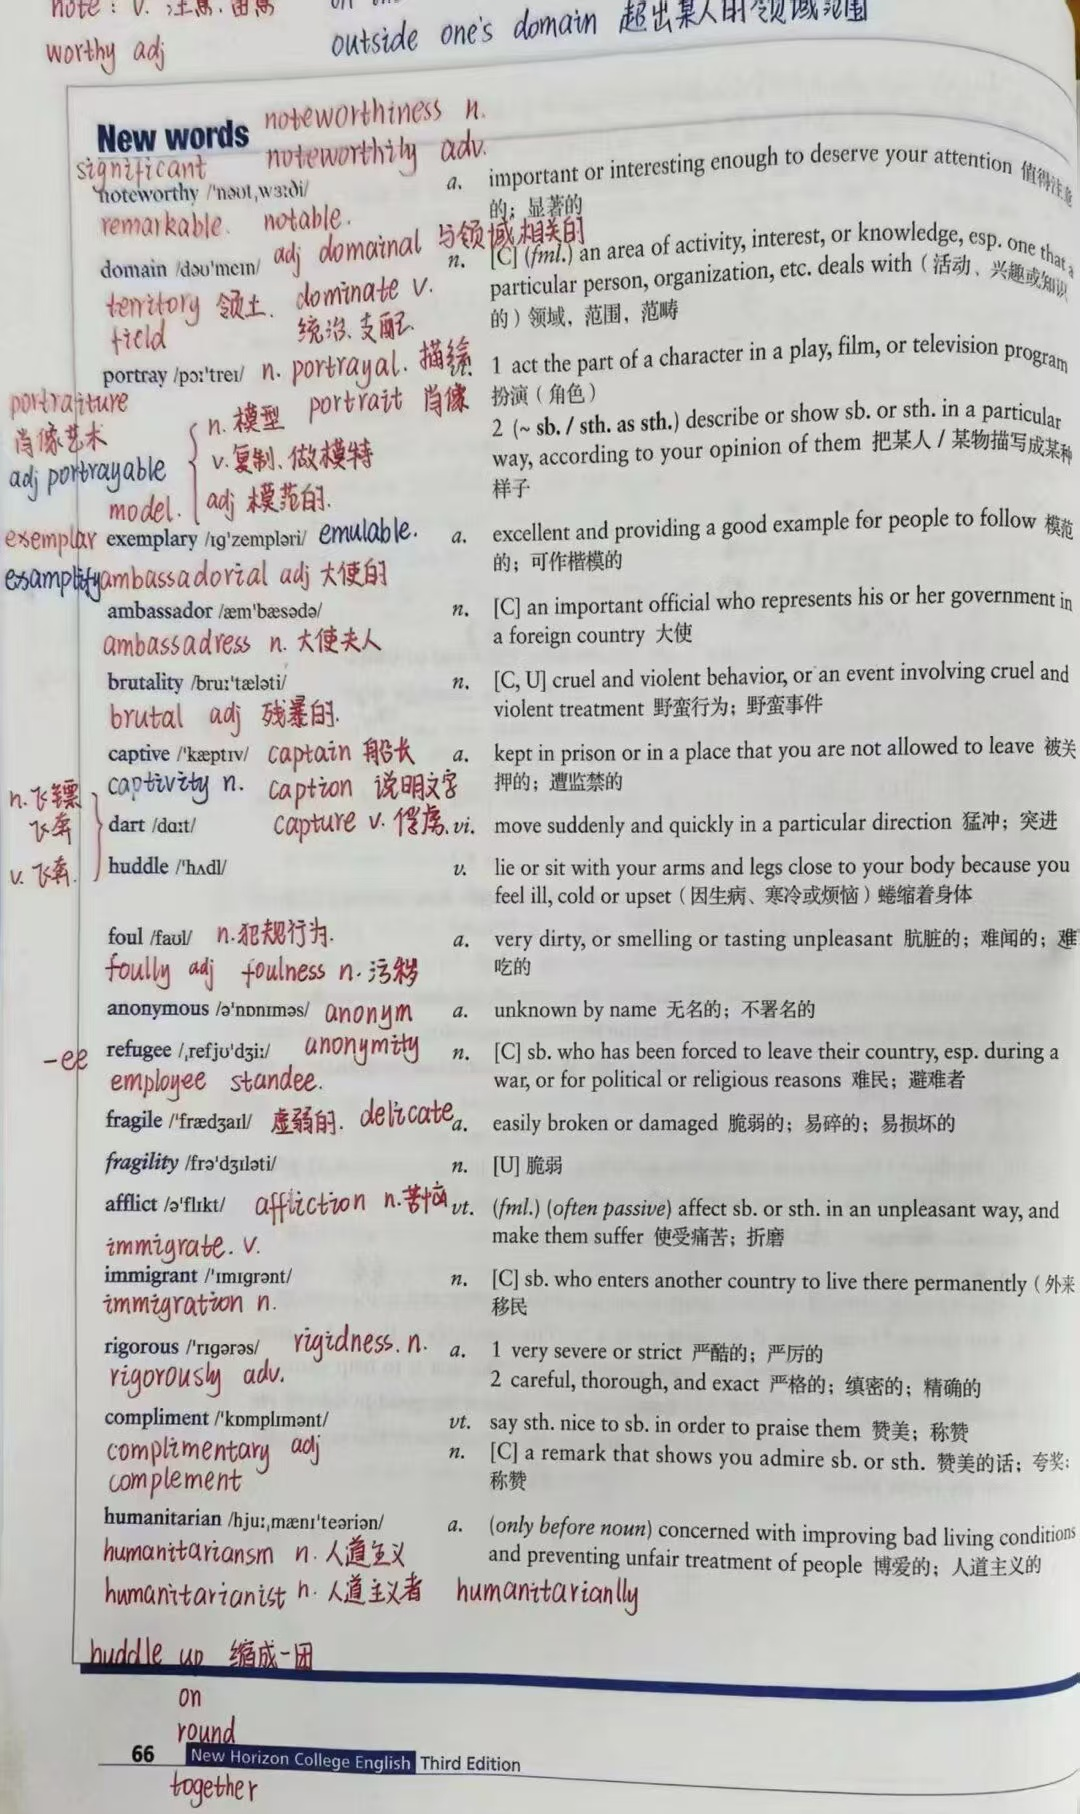 note : v. 注意.
worthy adj
outside one's domain 超出某人的领域范围
New words
noteworthiness n.
significant noteworthily adv.
noteworthy /'nəʊt,wɜːði/ a. important or interesting enough to deserve your attention 值得注意
的；显著的
remarkable. notable.
adj domainal 与领域相关的
domain /dəʊ'meɪn/ n. [C] (fml.) an area of activity, interest, or knowledge, esp. one that a
particular person, organization, etc. deals with（活动、兴趣或知识
的）领域，范围，范畴
territory 领土. dominate v.
field 统治、支配
portray /pɔː'treɪ/ n. portrayal. 描绘 1 act the part of a character in a play, film, or television program
扮演（角色）
portraiture portrait 肖像
肖像艺术
adj portrayable
2 (~ sb. / sth. as sth.) describe or show sb. or sth. in a particular
way, according to your opinion of them 把某人 / 某物描写成某种
样子
n. 模型
v. 复制、做模特
model. adj 模范的.
exemplar exemplary /ɪg'zempləri/ emulable. a. excellent and providing a good example for people to follow 模范
的；可作楷模的
ambassadorial adj 大使的
ambassador /æm'bæsədə/ n. [C] an important official who represents his or her government in
a foreign country 大使
ambassadress n. 大使夫人
brutality /bruː'tæləti/ n. [C, U] cruel and violent behavior, or an event involving cruel and
violent treatment 野蛮行为；野蛮事件
brutal adj 残暴的.
captive /'kæptɪv/ captain 船长 a. kept in prison or in a place that you are not allowed to leave 被关
押的；遭监禁的
captivity n. caption 说明文字
n. 飞镖
飞奔
v. 飞奔.
dart /dɑːt/ capture v. 俘虏. vi. move suddenly and quickly in a particular direction 猛冲；突进
huddle /'hʌdl/ v. lie or sit with your arms and legs close to your body because you
feel ill, cold or upset（因生病、寒冷或烦恼）蜷缩着身体
foul /faʊl/ n. 犯规行为. a. very dirty, or smelling or tasting unpleasant 肮脏的；难闻的；难
吃的
foully adj foulness n. 污秽
anonymous /ə'nɒnɪməs/ anonym a. unknown by name 无名的；不署名的
-ee refugee /ˌrefjʊ'dʒiː/ anonymity n. [C] sb. who has been forced to leave their country, esp. during a
war, or for political or religious reasons 难民；避难者
employee standee.
fragile /'frædʒaɪl/ 虚弱的. delicate a. easily broken or damaged 脆弱的；易碎的；易损坏的
fragility /frə'dʒɪləti/ n. [U] 脆弱
afflict /ə'flɪkt/ affliction n. 苦恼 vt. (fml.) (often passive) affect sb. or sth. in an unpleasant way, and
make them suffer 使受痛苦；折磨
immigrate. v.
immigrant /'ɪmɪgrənt/ n. [C] sb. who enters another country to live there permanently（外来
移民
immigration n.
rigorous /'rɪgərəs/ rigidness. n. a. 1 very severe or strict 严酷的；严厉的
rigorously adv. 2 careful, thorough, and exact 严格的；缜密的；精确的
compliment /'kɒmplɪmənt/ vt. say sth. nice to sb. in order to praise them 赞美；称赞
complimentary adj n. [C] a remark that shows you admire sb. or sth. 赞美的话；夸奖；
complement 称赞
humanitarian /hjuːˌmænɪ'teəriən/ a. (only before noun) concerned with improving bad living conditions
and preventing unfair treatment of people 博爱的；人道主义的
humanitariansm n. 人道主义
humanitarianist n. 人道主义者 humanitarianlly
huddle up 缩成一团
on
round
66 New Horizon College English Third Edition
together